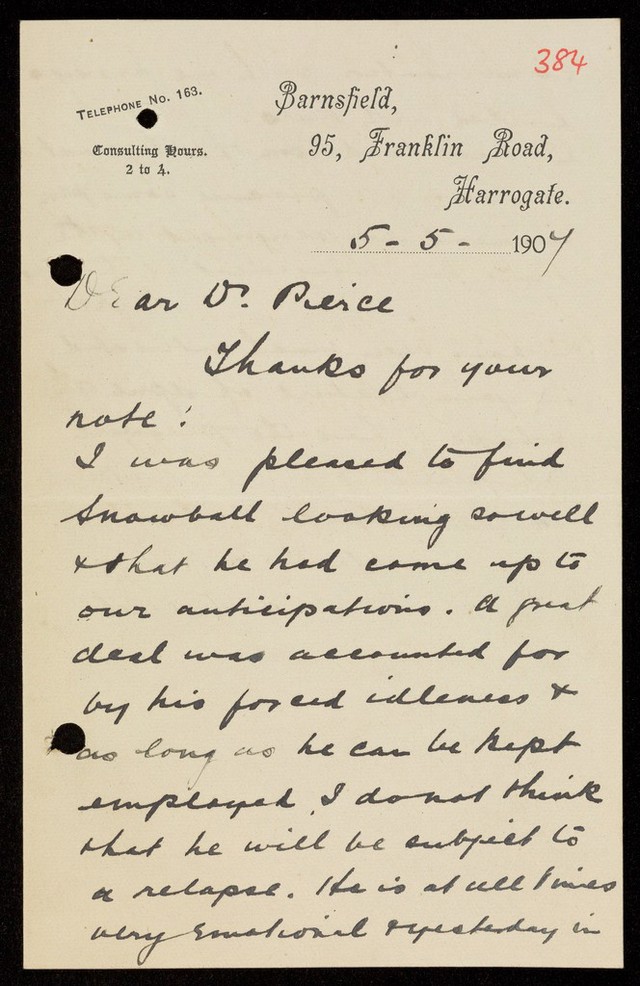 384
TELEPHONE No. 163.
Consulting Hours.
2 to 4.
Barnsfield,
95, Franklin Road,
Harrogate.
5 - 5 - 1907
Dear Dr. Pierce
Thanks for your
note :
I was pleased to find
Snowball looking so well
& that he had come up to
our anticipations. A great
deal was accounted for
by his forced idleness &
as long as he can be kept
employed I do not think
that he will be subject to
a relapse. He is at all times
very emotional & yesterday in